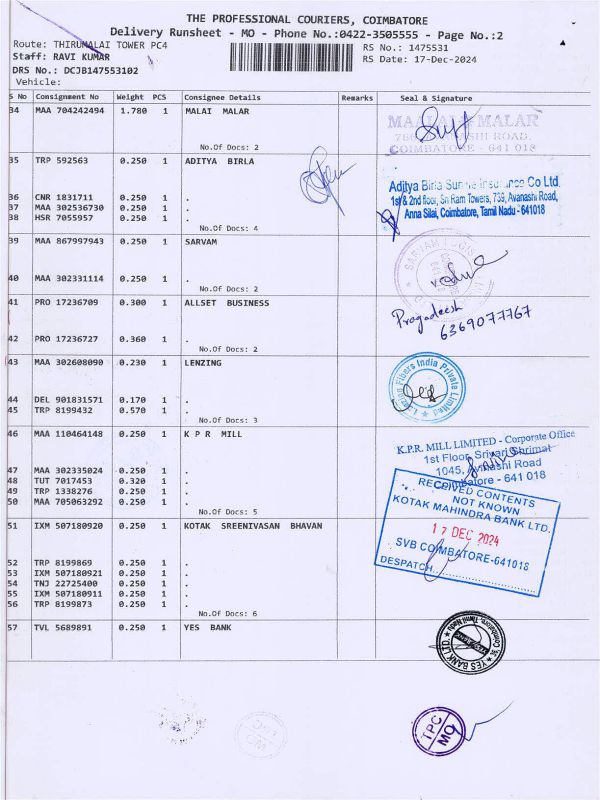 THE PROFESSIONAL COURIERS, COIMBATORE
Delivery Runsheet - MO - Phone No.:0422-3505555 - Page No.:2
Route: THIRUMALAI TOWER PC4
RS No.: 1475531
Staff: RAVI KUMAR
RS Date: 17-Dec-2024
DRS No.: DCJB147553102
Vehicle:
S No Consignment No Weight PCS Consignee Details Remarks Seal & Signature
34 MAA 704242494 1.780 1 MALAI MALAR
No.Of Docs: 2
MALAR
ROAD.
COIMBATORE - 641 018
35 TRP 592563 0.250 1 ADITYA BIRLA
36 CNR 1831711 0.250 1 .
37 MAA 302536730 0.250 1 .
38 HSR 7055957 0.250 1 .
No.Of Docs: 4
Aditya Birla Sun Insurance Co Ltd.
1st & 2nd floor, Sri Ram Towers, 739, Avanashi Road,
Anna Silai, Coimbatore, Tamil Nadu - 641018
39 MAA 867997943 0.250 1 SARVAM
40 MAA 302331114 0.250 1 .
No.Of Docs: 2
SARVAM
41 PRO 17236709 0.300 1 ALLSET BUSINESS
42 PRO 17236727 0.360 1 .
No.Of Docs: 2
Pragadeesh
6369077767
43 MAA 302608090 0.230 1 LENZING
44 DEL 901831571 0.170 1 .
45 TRP 8199432 0.570 1 .
No.Of Docs: 3
Lenzing Fibers India Private Limited
46 MAA 110464148 0.250 1 K P R MILL
47 MAA 302335024 0.250 1 .
48 TUT 7017453 0.320 1 .
49 TRP 1338276 0.250 1 .
50 MAA 705063292 0.250 1 .
No.Of Docs: 5
K.P.R. MILL LIMITED - Corporate Office
1st Floor, Srivari Shrimat
1045, Avinashi Road
Coimbatore - 641 018
51 IXM 507180920 0.250 1 KOTAK SREENIVASAN BHAVAN
52 TRP 8199869 0.250 1 .
53 IXM 507180921 0.250 1 .
54 TNJ 22725400 0.250 1 .
55 IXM 507180911 0.250 1 .
56 TRP 8199873 0.250 1 .
No.Of Docs: 6
RECEIVED CONTENTS
NOT KNOWN
KOTAK MAHINDRA BANK LTD.
17 DEC 2024
SVB COIMBATORE-641018
DESPATCH
57 TVL 5689891 0.250 1 YES BANK
YES BANK LTD.
Coimbatore, Tamil Nadu
TPC
MO